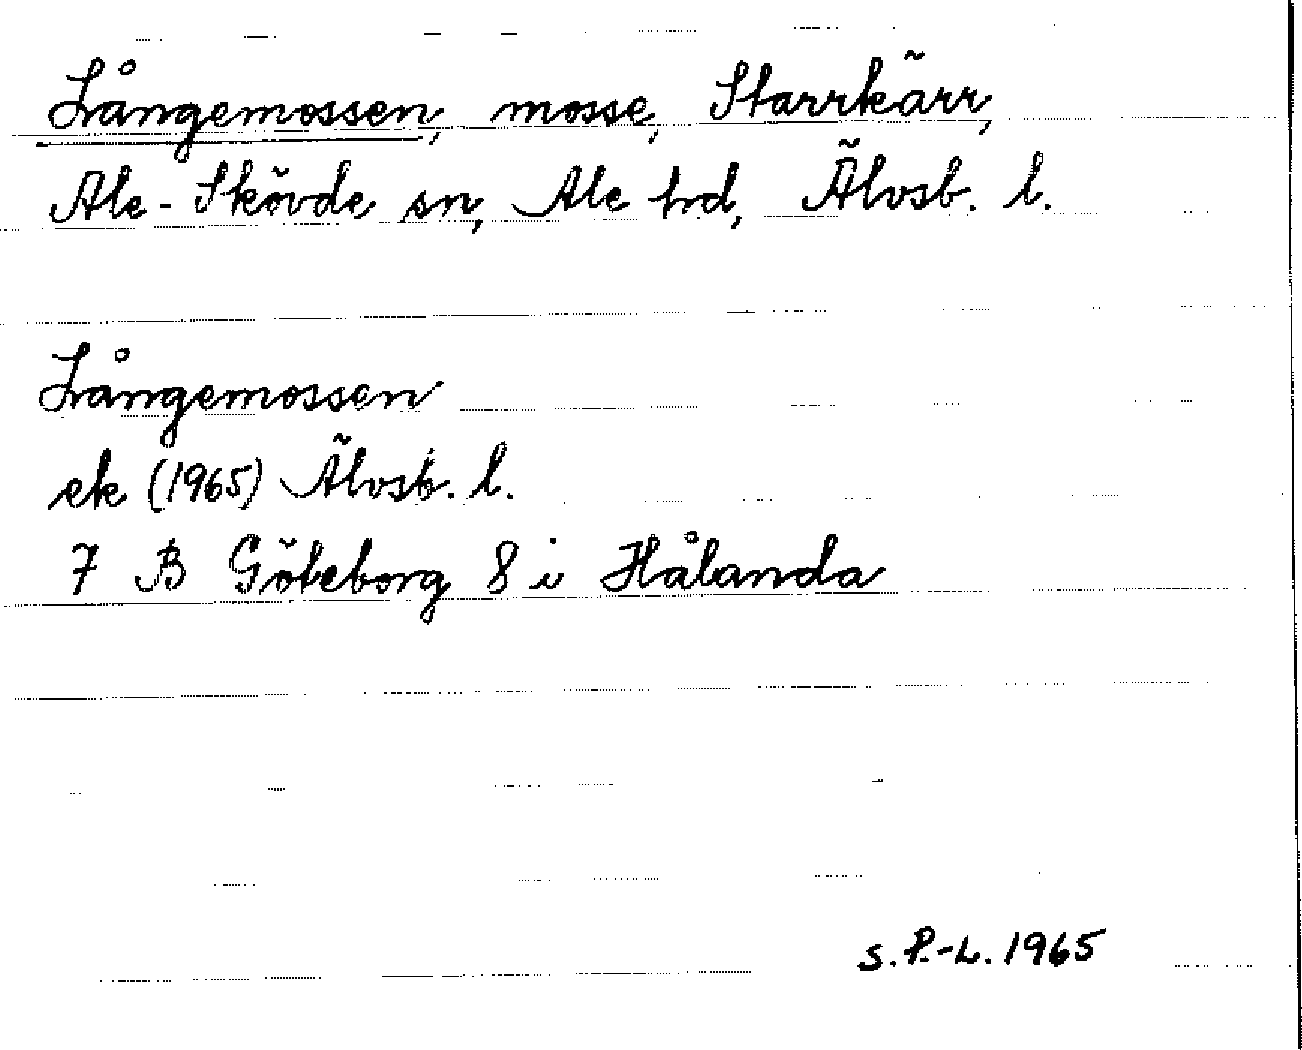 Långemossen, mosse, Starrkärr,
Ale-Skövde sn, Ale hd, Älvsb. l.
Långemossen
ek (1965) Älvsb. l.
7 B Göteborg 8 i Hålanda
S. P.-L. 1965